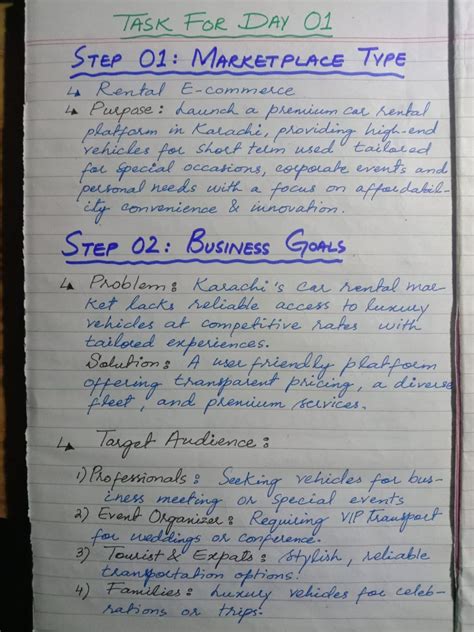 TASK FOR DAY 01
STEP 01: MARKETPLACE TYPE
↳ Rental E-commerce
↳ Purpose: Launch a premium car rental
platform in Karachi, providing high-end
vehicles for short term used tailored
for special occasions, corporate events and
personal needs with a focus on affordabil-
ity convenience & innovation.
STEP 02: BUSINESS GOALS
↳ Problem: Karachi's car rental mar-
ket lacks reliable access to luxury
vehicles at competitive rates with
tailored experiences.
Solution: A user friendly platform
offering transparent pricing, a diverse
fleet, and premium services.
↳ Target Audience:
1) Professionals: Seeking vehicles for bus-
iness meeting or special events
2) Event Organizer: Requiring VIP Transport
for weddings or conference.
3) Tourist & Expats: stylish, reliable
transportation options.
4) Families: Luxury vehicles for celeb-
rations or trips.